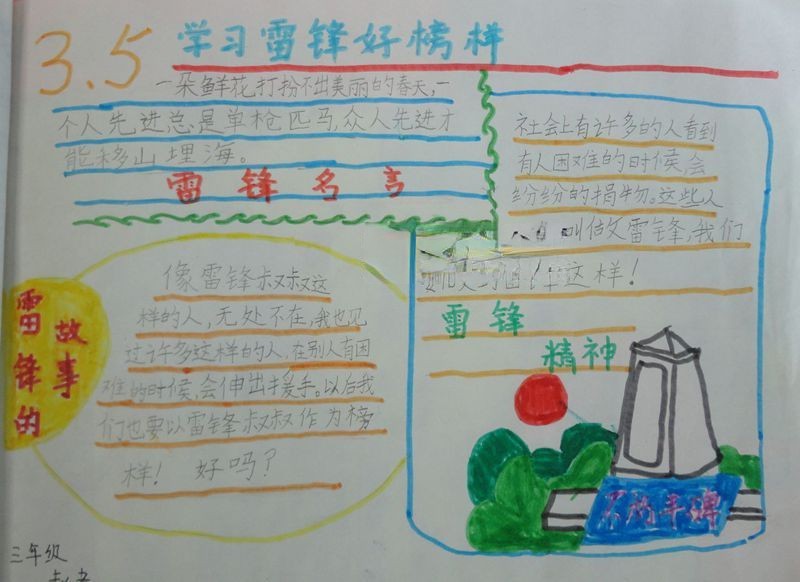 3.5 学习雷锋好榜样
一朵鲜花打扮不出美丽的春天,一
个人先进总是单枪匹马,众人先进才
能移山埋海。
雷锋名言
社会上有许多的人看到
有人困难的时候,会
纷纷的捐物。这些人
叫做雷锋,我们
这样!
雷锋
精神
雷锋的
故事
像雷锋叔叔这
样的人,无处不在,我也见
过许多这样的人,在别人有困
难的时候,会伸出援手。以后我
们也要以雷锋叔叔作为榜
样! 好吗?
三年级